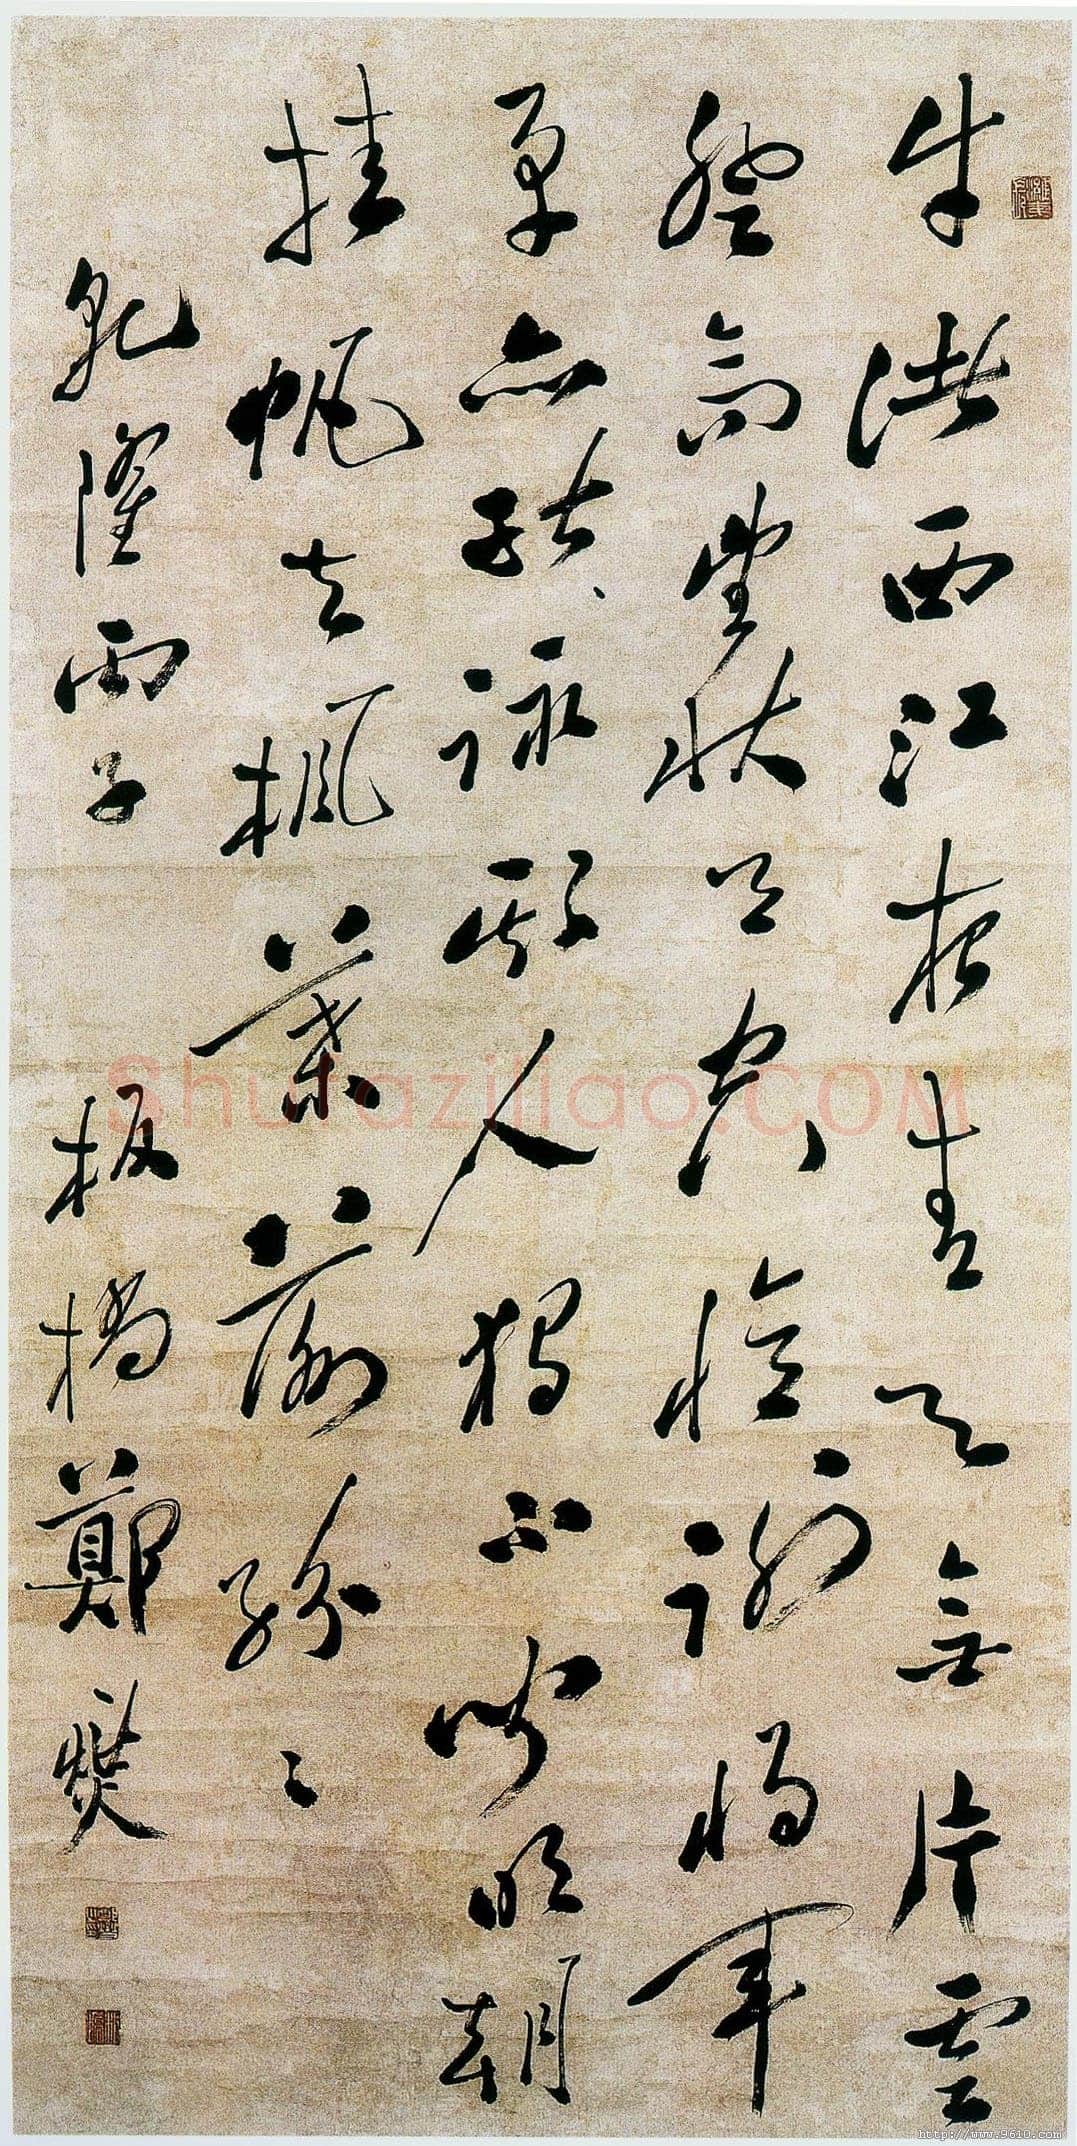 牛渚西江夜青天無片雲
登高望秋月空憶謝將軍
亦能詠斯人獨不聞明朝
挂帆去楓葉落紛〻
乾隆丙子 板橋鄭燮
Shufaziliao.COM
http://www.9610.com